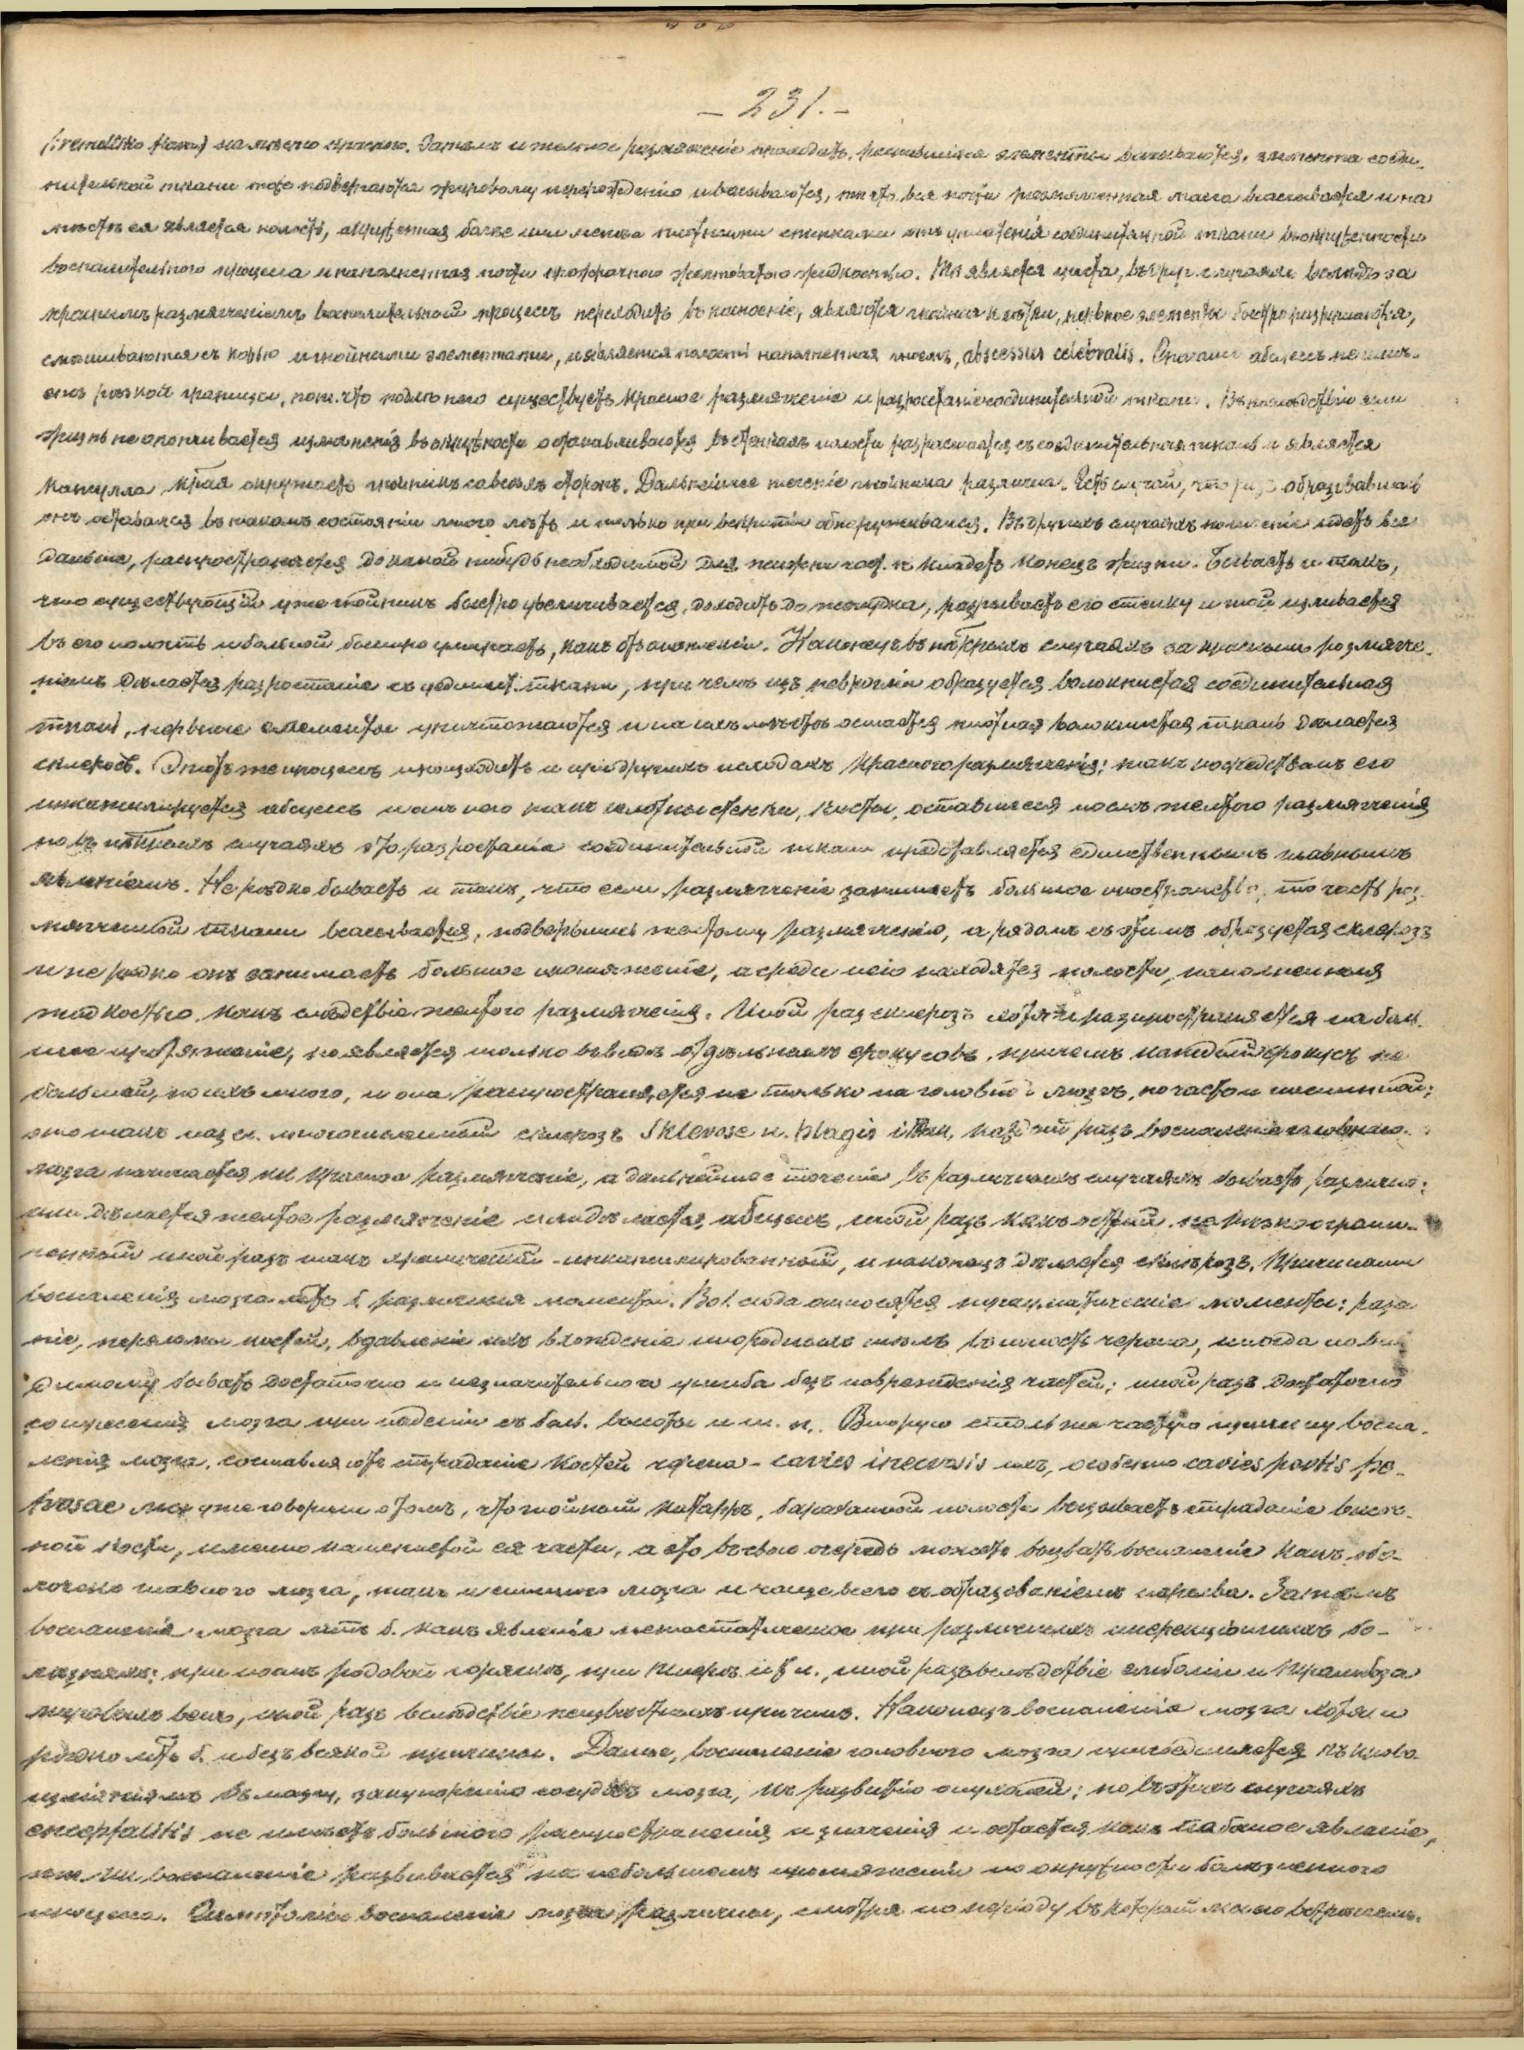 – 231. –
на мѣсто краснаго. Затѣмъ и желтое размягченіе проходитъ, распавшіеся элементы всасываются, элементы соеди-
нительной ткани тоже подвергаются жировому перерожденію и всасываются, вся почти размягченная масса всасывается и на
мѣстѣ ея является полость, окруженная болѣе или менѣе плотными стѣнками отъ уплотненія соединительной ткани въ окружности
воспалительнаго процесса и наполненная почти прозрачною желтоватою жидкостью. является циста, въ друг. случаяхъ вслѣдъ за
краснымъ размягченіемъ воспалительный процессъ переходитъ въ нагноеніе, являются гнойныя клѣтки, нервные элементы быстро разрушаются,
смѣшиваются съ кровью и гнойными элементами, и является полость наполненная гноемъ, abscessus celebralis. Вначалѣ абсцессъ не имѣ-
етъ рѣзкой границы, пот. что подлѣ него существуетъ красное размягченіе и разростаніе соединительной ткани. Впослѣдствіи если
жизнь не оканчивается измѣненія въ окружности останавливаются въ стѣнкахъ полости разрастается соединительная ткань и является
капсулла, края окружаетъ гнойникъ со всѣхъ сторонъ. Дальнѣйшее теченіе гнойника различно. Есть случаи, что образовавшись
онъ оставался въ такомъ состояніи много лѣтъ и только при вскрытіи обнаруживался. Въ другихъ случаяхъ нагноеніе идетъ все
дальше, распространяется до какой нибудь необходимой для жизни част. и кладетъ конецъ жизни. Бываетъ и такъ,
что существующій уже гнойникъ быстро увеличивается, доходитъ до желудка, разрываетъ его стѣнку и гной изливается
въ его полость и больной быстро умираетъ, какъ отъ апоплексіи. Наконецъ въ нѣкрыхъ случаяхъ за краснымъ размягче-
ніемъ дѣлается разростаніе соединит. ткани, при чемъ изъ невроглiи образуется волокнистая соединительная
ткань, нервные элементы уничтожаются и на ихъ мѣстѣ остается плотная волокнистая ткань дѣлается
склерозъ. Этотъ же процессъ происходитъ и при другихъ исходахъ краснаго размягченія; такъ посредствомъ его
инкапсулируется абсцессъ и отъ него же плотны стѣнки, кисты, оставшіеся послѣ желтаго размягченія
но въ нѣкрыхъ случаяхъ это разростаніе соединительной ткани представляется единственнымъ главнымъ
явленіемъ. Не рѣдко бываетъ и такъ, что если размягченіе занимаетъ большое пространство, то часть раз-
мягченной ткани всасывается, подвергшись желтому размягченію, а рядомъ съ этимъ образуется склерозъ
и не рѣдко онъ занимаетъ большое протяженіе, а среди него находятся полости, наполненныя
жидкостью, какъ слѣдствіе желтаго размягченія. Иной раз склерозъ хотя и распространяется на боль-
шое протяженіе, но является только въ видѣ отдѣльныхъ фокусовъ, причемъ каждый фокусъ не
большой, но ихъ много, и она распространяется не только на головной мозгъ, но часто и спинной;
это такъ наз. многочисленный склерозъ Sklerose н. plagis і. Такъ, каждый разъ воспаленіе головнаго
мозга начинается красное размягченіе, а дальнѣйшее теченіе въ различныхъ случаяхъ бываетъ различно:
или дѣлается желтое размягченіе или дѣлается абсцессъ, иной разъ какъ острый, не рѣзко ограни-
ченный иной разъ такъ хроническій - инкапсулированный, и наконецъ дѣлается склерозъ. Причинами
воспаленія мозга мѣтъ б. различныя моменты. Во1. сюда относятся травматическіе моменты: ране-
ніе, переломы костей, вдавленіе ихъ вхожденіе инородныхъ тѣлъ въ полость черепа, иногда по ви-
димому бываетъ достаточно и незначительнаго ушиба безъ поврежденія костей; иной разъ достаточно
сотрясенія мозга при паденіи съ больш. высоты и т. п. Вторую столь же частую причину воспа-
ленія мозга, составляютъ страданіе костей черепа - caries i necrosis ихъ, особенно caries partis pe-
trosae мы уже говорили о томъ, что гнойный катарръ, барабанной полости вызываетъ страданіе височ-
ной кости, именно каменистой ея части, а это въ свою очередь можетъ вызвать воспаленіе какъ обо-
лочекъ главнаго мозга, такъ и самого мозга и чаще всего съ образованіемъ нарыва. Затѣмъ
воспаленіе мозга мѣтъ б. какъ явленіе метостатическое при различныхъ инфекціонныхъ бо-
лѣзняхъ: при послѣ родовой горячкѣ, при т. п., иной разъ вслѣдствіе эмболіи и тромбоза
мозговыхъ венъ, иной разъ вслѣдствіе неизвѣстныхъ причинъ. Наконецъ воспаленіе мозга хотя и
рѣдко мѣтъ б. и безъ всякой причины. Далѣе, воспаленіе головного мозга присоединяется къ крово-
изліяніямъ въ мозгу, закупоренію сосудовъ мозга, къ развитію опухолей; но въ этихъ случаяхъ
encephalitis не имѣетъ большого распространенія и значенія и остается какъ побочное явленіе,
воспаленіе развивается на небольшомъ протяженіи по окружности болѣзненнаго
процесса. Симптомы воспаленія мозга различны, смотря по періоду въ который можно встрѣчаемъ.